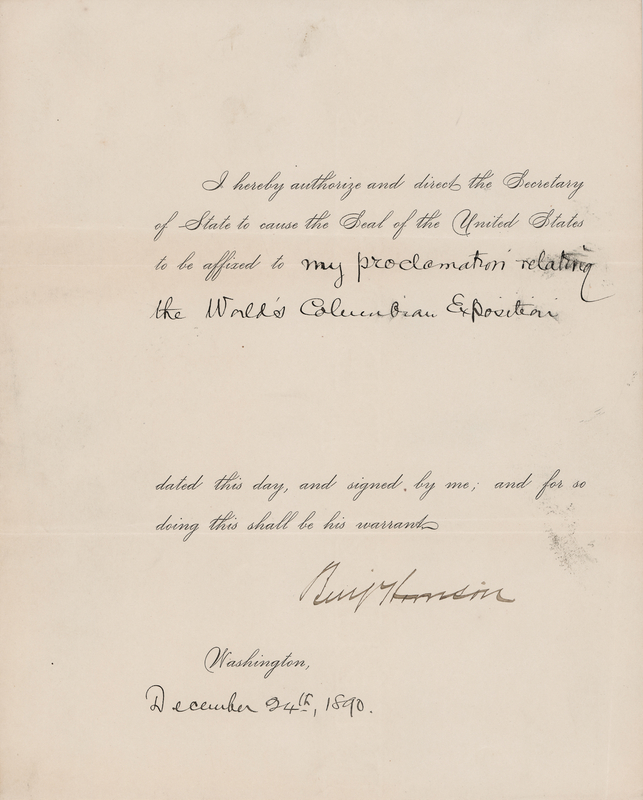 I hereby authorize and direct the Secretary
of State to cause the Seal of the United States
to be affixed to my proclamation relating
the World's Columbian Exposition
dated this day, and signed by me; and for so
doing this shall be his warrant
Benj Harrison
Washington,
December 24th, 1890.